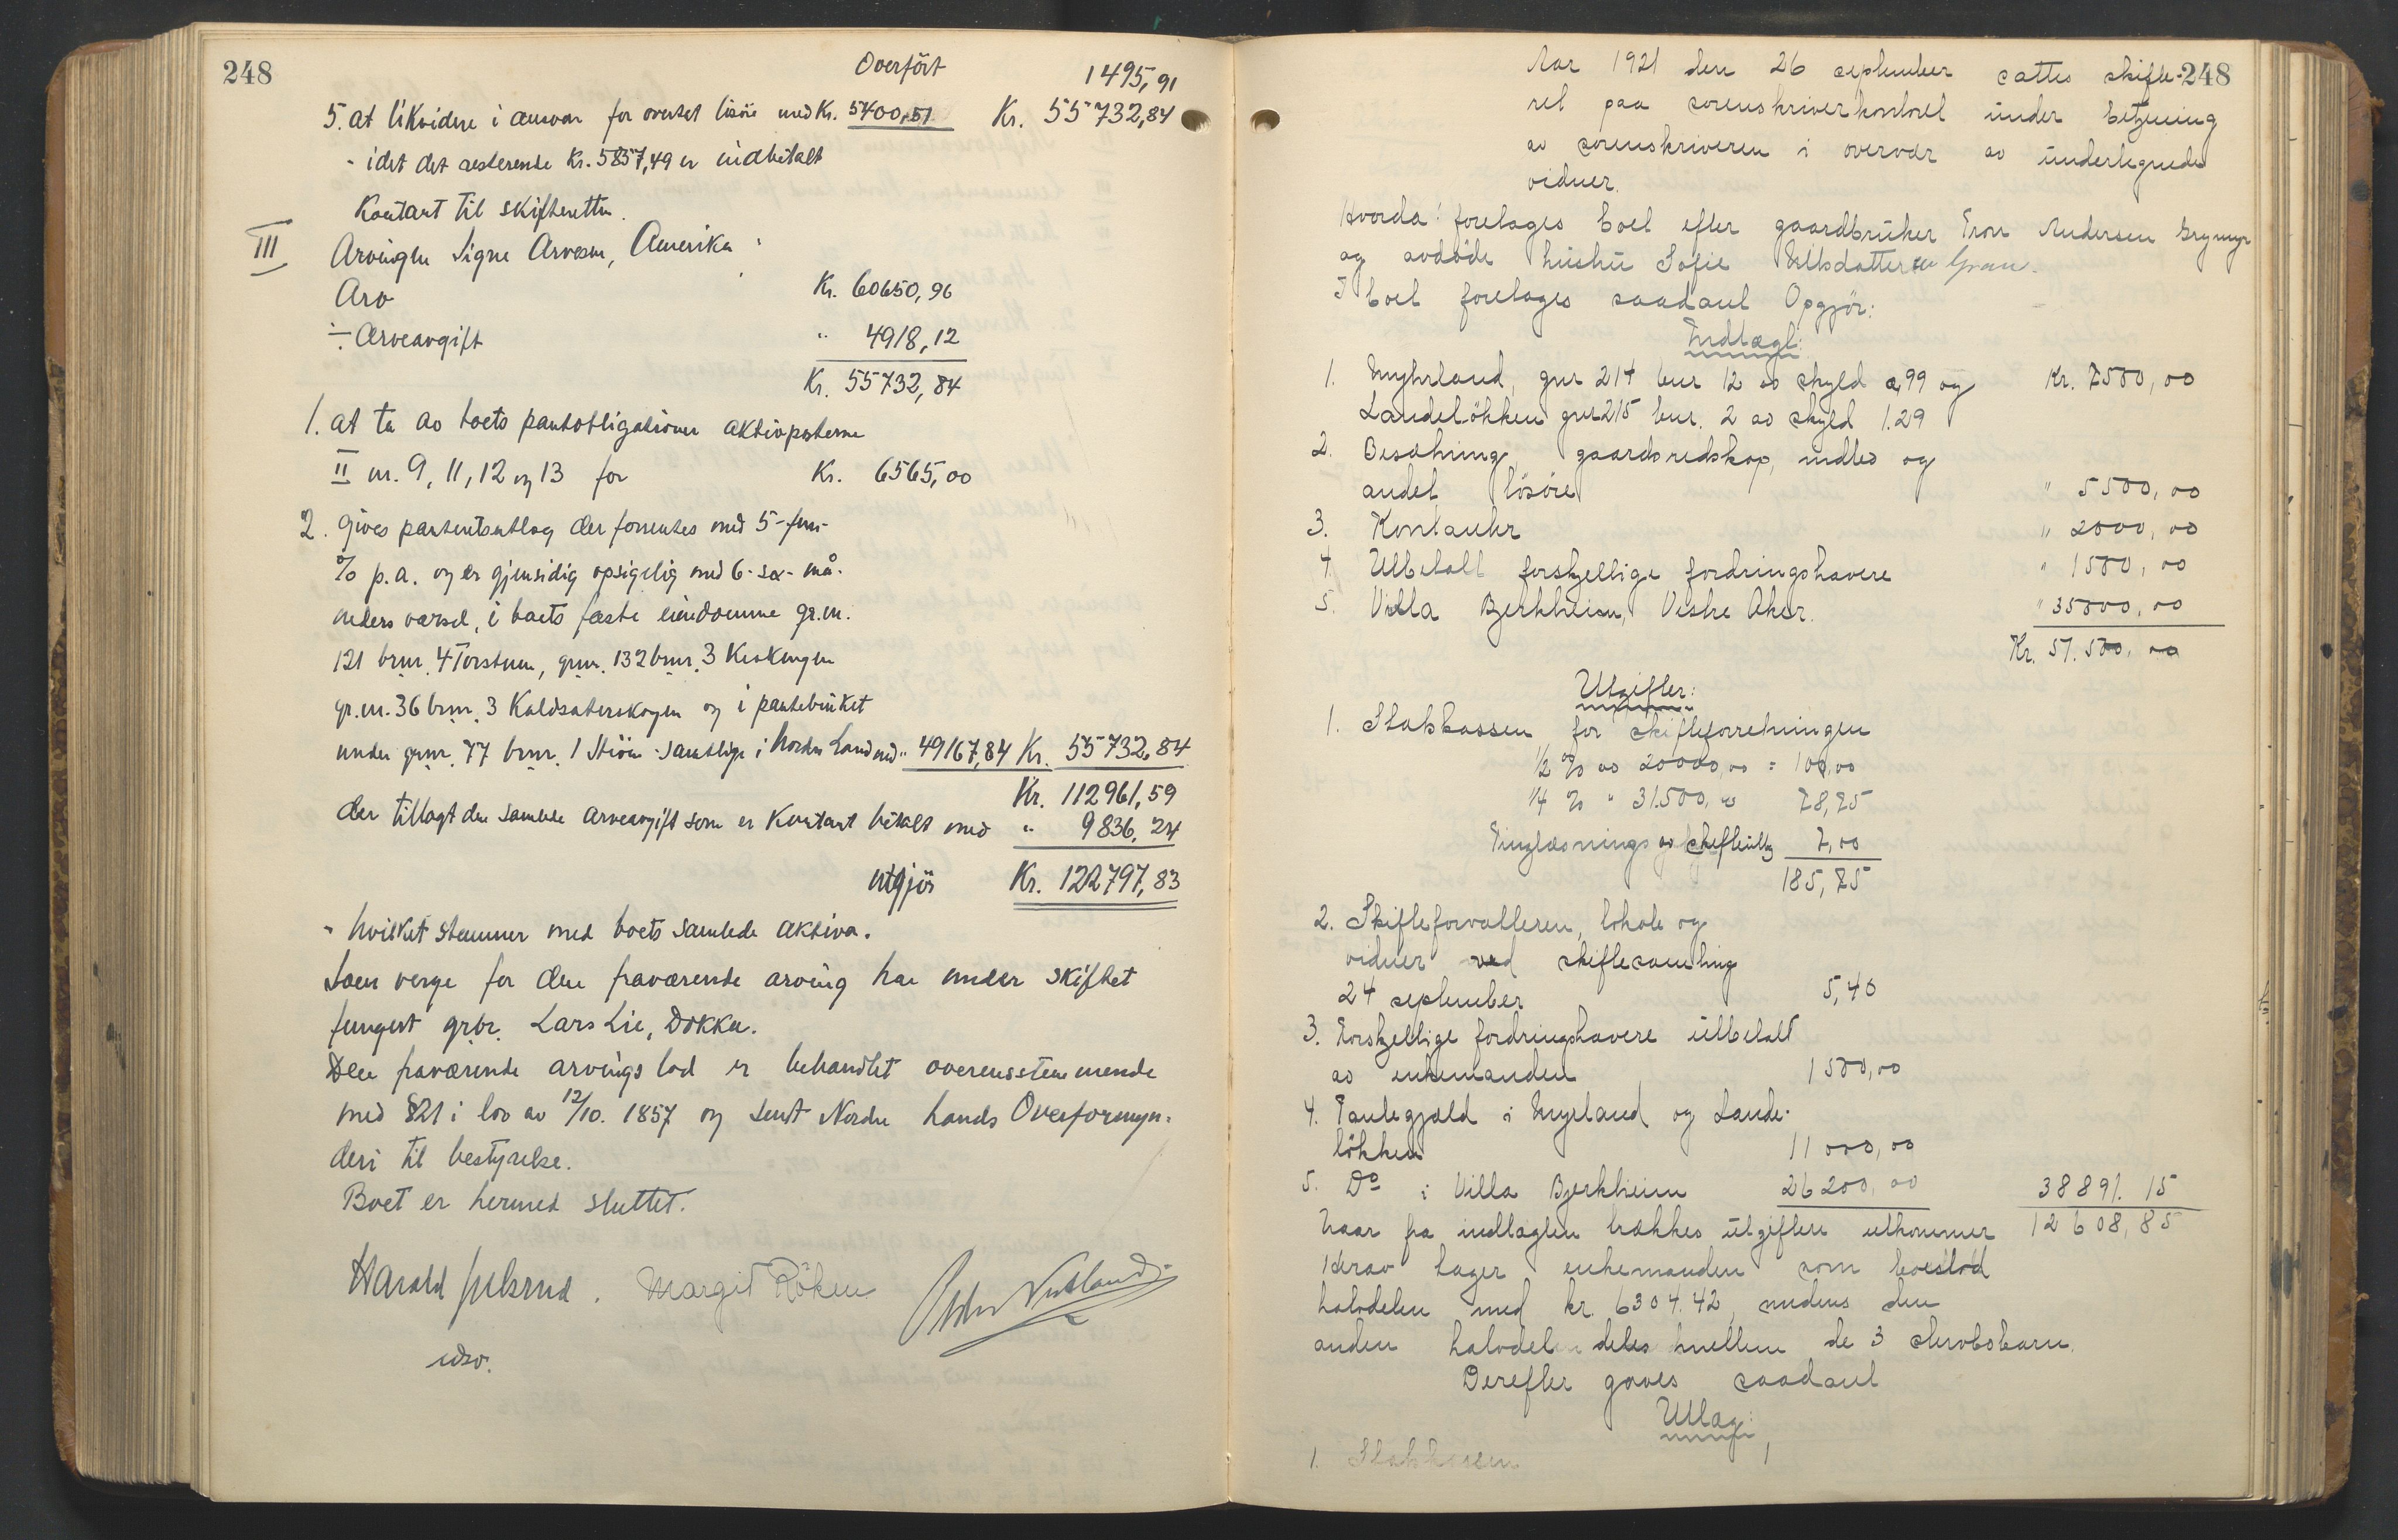 248
Overfört 1495,91
5. at likvidere i ansvar for overtat lösöre med Kr. 5400,51 Kr. 55732,84
- idet det resterende Kr. 5857,49 er indbetalt
Kontant til skifteretten.
III Arvingen Signe Arvesen, Amerika:
Arv Kr. 60650,96
÷ Arveavgift " 4918,12
Kr. 55732,84
1. at ta av boets pantobligationer aktivposterne
II nr. 9, 11, 12 og 13 for Kr. 6565,00
2. gives panteretsutlæg der forrentes med 5-fem-
% p.a. og er gjensidig opsigelig med 6-sex-må-
neders varsel, i boets faste eiendomme gr.nr.
121 brnr. 4 Torstuen, grnr. 132 brnr. 3
gr.nr. 36 brnr. 3 Kaldsæterskogen og i pantebruket
under grnr. 77 brnr. 1 samtlige i Nordre Land med " 49167,84 Kr. 55732,84
Kr. 112961,59
der tillagt den samlede arveavgift som er Kontant betalt med " 9836,24
utgjör Kr. 122797,83
- hvilket stemmer med boets samlede aktiva.
Som verge for den fraværende arving har under skiftet
fungert grbr. Lars Lie, Dokka.
Den fraværende arvings lod er behandlet overensstemmende
med §21 i lov av 12/10. 1857 og sendt Nordre Lands Overformyn-
deri til bestyrelse.
Boet er hermed sluttet.
Harald Julsrud. Margit Röken
248
Aar 1921 den 26 september sattes skifte-
ret paa sorenskriverkontoret under betjening
av sorenskriveren i overvær av undertegnede
vidner.
Hvorda: foretages boet efter gaardbruker Iver Andersen
og avdöde hustru Sofie av Gran.
I boet foretages saadant Opgjör:
Indtægt:
1. Myhrland, gnr 214 bnr 12 av skyld 0,99 og Kr. 7500,00
Landelökken gnr 215 bnr. 2 av skyld 1.29
2. Besætning, gaardsredskap, indbo og
andet lösöre " 5500,00
3. Kontanter " 2000,00
4. Utbetalt forskjellige fordringshavere " 1500,00
5. Villa Bjerkheim, Vestre Aker. " 35000,00
Kr. 51.500,00
Utgifter:
1. Statskassen for skifteforretningen
1/2 % av 20000,00 = 100,00
1/4 % " 31.500,00 78,75
Tinglæsnings av skifteutlæg 7,00
185,75
2. Skifteforvalteren, lokale og
vidner ved skiftesamling
24 september 5,40
3. Forskjellige fordringshavere utbetalt
av enkemanden 1500,00
4. Pantegjæld i Myrland og Lande-
lökken 11000,00
5. Do i Villa Bjerkheim 26200,00 38891.15
Naar fra indtægten trækkes utgiften utkommer 12608,85
Herav tager enkemanden som boeslod
halvdelen med kr. 6304.42, medens den
anden halvdel deles mellem de 3 skivtsbarn.
Derefter gaves saadant
Utlæg:
1. Statskassen